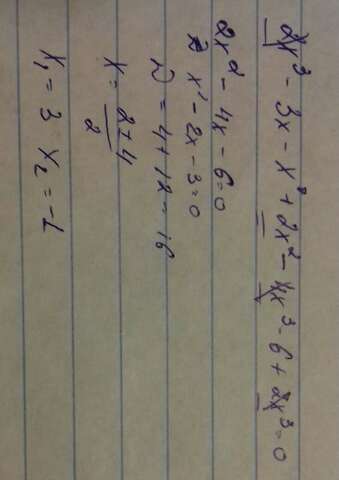 2x³ - 3x - x² + 2x² - 4x³ - 6 + 2x³ = 0
2x² - 4x - 6 = 0
x² - 2x - 3 = 0
D = 4 + 12 = 16
x = (2 ± 4) / 2
x₁ = 3 x₂ = -1